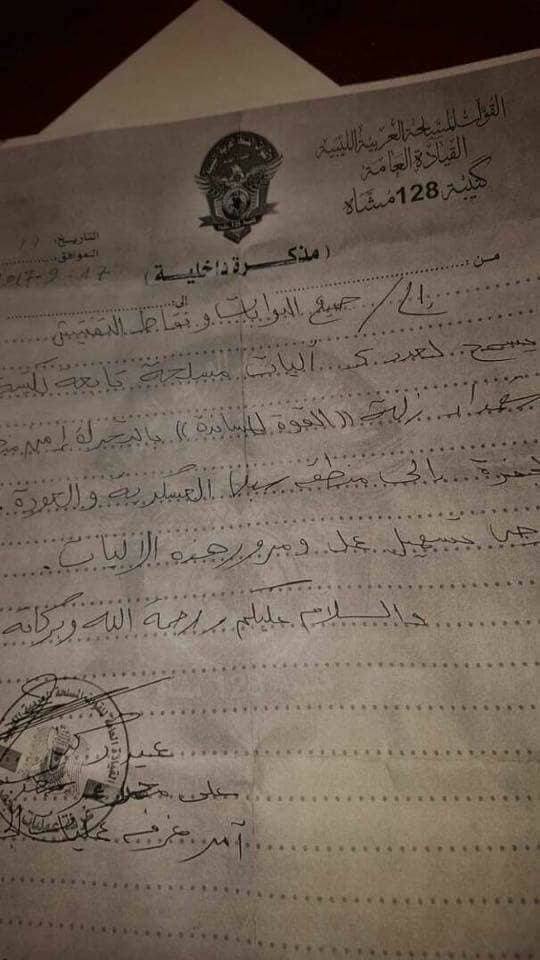 القوات المسلحة العربية الليبية
القيادة العامة
كتيبة 128 مشاه
التاريخ:
الموافق: 2017-9-17
(مذكرة داخلية)
من
إلى
إلى / جميع البوابات ونقاط التفتيش
يسمح لعدد آليات مسلحة تابعة
شهداء زلة «القوة المساندة» بالتحرك من
الجفرة إلى منطقة سبها العسكرية والعودة
تسهيل عمل ومرور هذه الآليات.
والسلام عليكم ورحمة الله وبركاته
علي
آمر غرفة عمليات